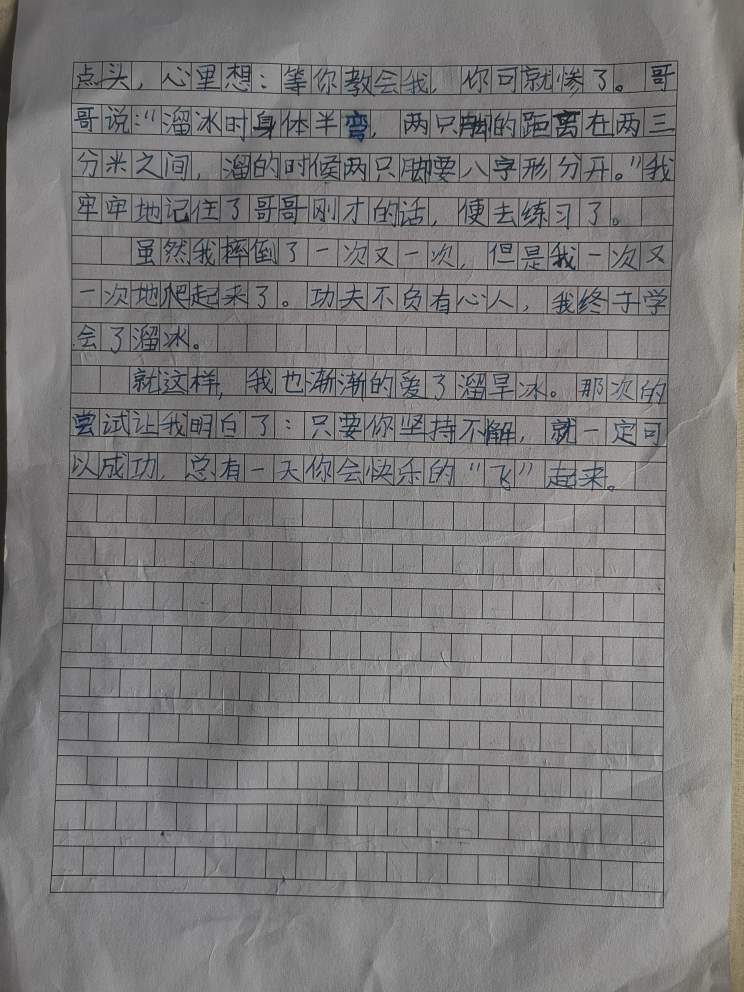 点头，心里想：等你教会我，你可就惨了。哥
哥说：“溜冰时身体半弯，两只脚的距离在两三
分米之间，溜的时候两只脚要八字形分开。”我
牢牢地记住了哥哥刚才的话，便去练习了。
虽然我摔倒了一次又一次，但是我一次又
一次地爬起来了。功夫不负有心人，我终于学
会了溜冰。
就这样，我也渐渐的爱了溜旱冰。那次的
尝试让我明白了：只要你坚持不解，就一定可
以成功，总有一天你会快乐的“飞”起来。